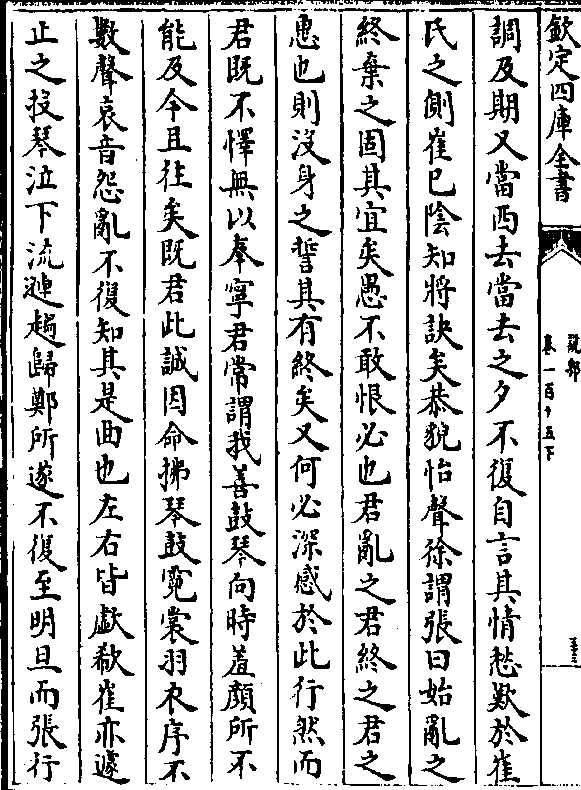 欽定四庫全書
說郛
卷一百十五下
調及期又當西去當去之夕不復自言其情愁歎於崔
氏之側崔已隂知將訣矣恭貌怡聲徐謂張曰始亂之
終棄之固其宜矣愚不敢恨必也君亂之君終之君之
惠也則沒身之誓其有終矣又何必深感於此行然而
君既不懌無以奉寧君常謂我善鼓琴向時羞顔所不
能及今且往矣既君此誠因命拂琴鼓霓裳羽衣序不
數聲哀音怨亂不復知其是曲也左右皆歔欷崔亦遽
止之投琴泣下流漣趨歸鄭所遂不復至明旦而張行